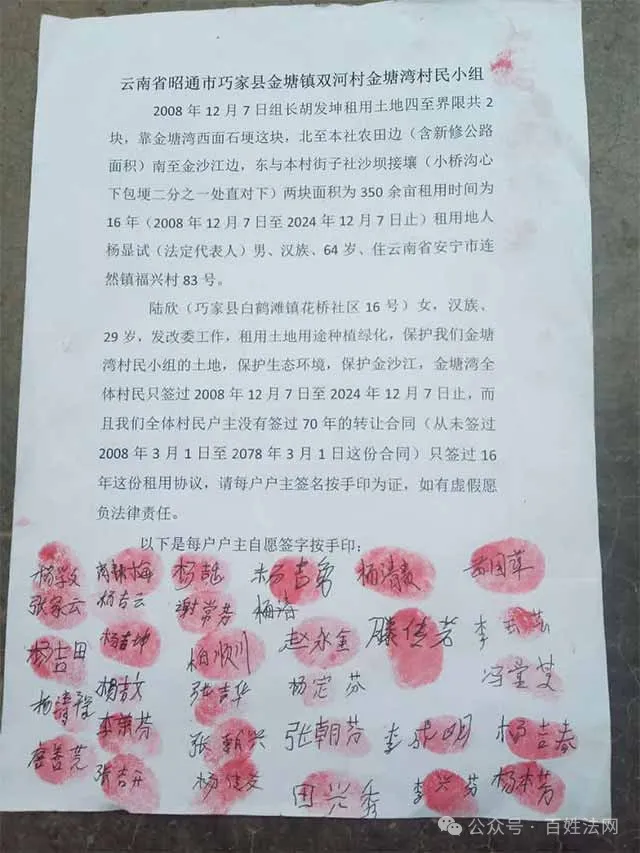 云南省昭通市巧家县金塘镇双河村金塘湾村民小组
2008 年 12 月 7 日组长胡发坤租用土地四至界限共 2
块，靠金塘湾西面石埂这块，北至本社农田边（含新修公路
面积）南至金沙江边，东与本村街子社沙坝接壤（小桥沟心
下包埂二分之一处直对下）两块面积为 350 余亩租用时间为
16 年（2008 年 12 月 7 日至 2024 年 12 月 7 日止）租用地人
杨显试（法定代表人）男、汉族、64 岁、住云南省安宁市连
然镇福兴村 83 号。
陆欣（巧家县白鹤滩镇花桥社区 16 号）女，汉族、
29 岁，发改委工作，租用土地用途种植绿化，保护我们金塘
湾村民小组的土地，保护生态环境，保护金沙江，金塘湾全
体村民只签过 2008 年 12 月 7 日至 2024 年 12 月 7 日止，而
且我们全体村民户主没有签过 70 年的转让合同（从未签过
2008 年 3 月 1 日至 2078 年 3 月 1 日这份合同）只签过 16
年这份租用协议，请每户户主签名按手印为证，如有虚假愿
负法律责任。
以下是每户户主自愿签字按手印：
杨学文 杨吉勇 杨清贵
张家云 杨吉云 谢常芬 杨涛
杨吉田 杨吉坤 柏顺川 赵永金 滕传芳
杨吉文 张吉华 杨定芬
李荣芬 张朝兴 张朝芬 李成明 杨吉春
唐善芫 张吉开 田兴秀 李兴芬 杨本芳
公众号·百姓法网